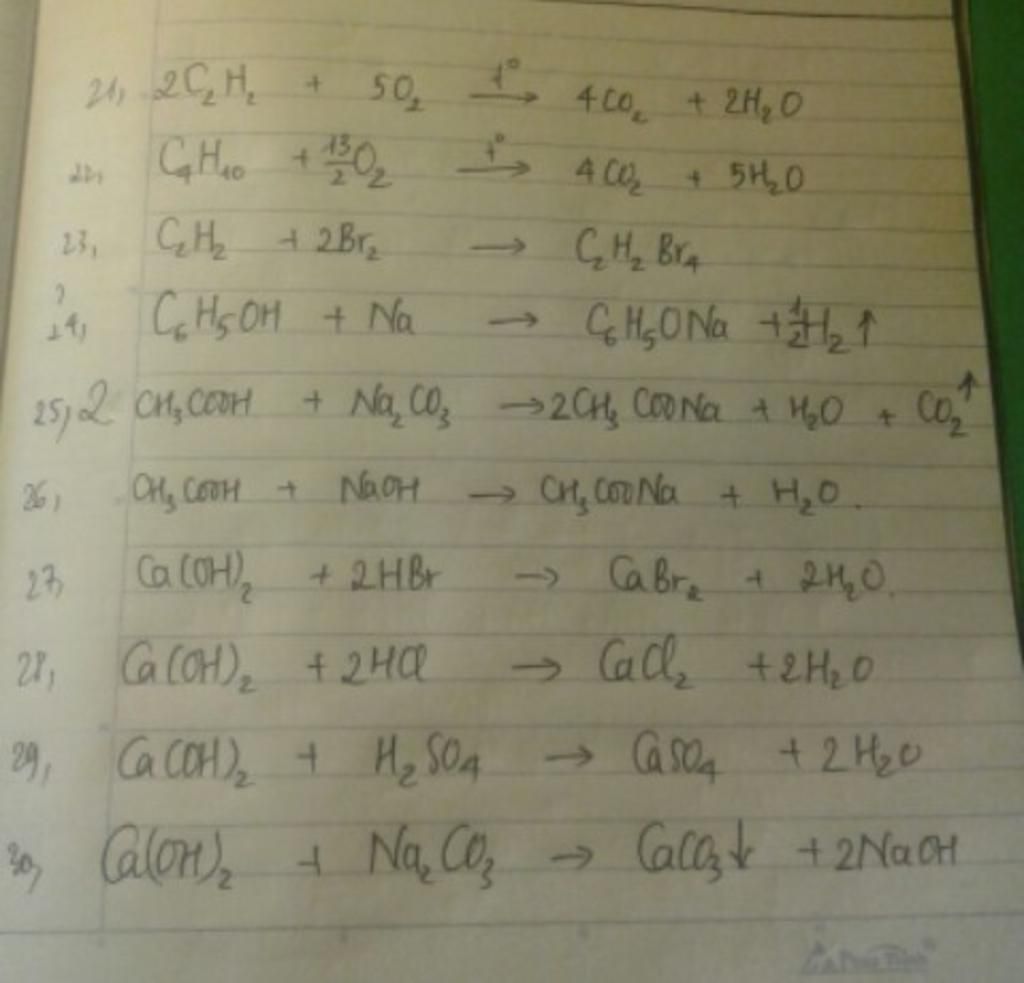 21, 2C₂H₂ + 5O₂ →(t°) 4CO₂ + 2H₂O
22, C₄H₁₀ + 13/2 O₂ →(t°) 4CO₂ + 5H₂O
23, C₂H₂ + 2Br₂ → C₂H₂Br₄
24, C₆H₅OH + Na → C₆H₅ONa + 1/2 H₂↑
25, 2 CH₃COOH + Na₂CO₃ → 2CH₃COONa + H₂O + CO₂↑
26, CH₃COOH + NaOH → CH₃COONa + H₂O.
27, Ca(OH)₂ + 2HBr → CaBr₂ + 2H₂O.
28, Ca(OH)₂ + 2HCl → CaCl₂ + 2H₂O
29, Ca(OH)₂ + H₂SO₄ → CaSO₄ + 2H₂O
30, Ca(OH)₂ + Na₂CO₃ → CaCO₃↓ + 2NaOH